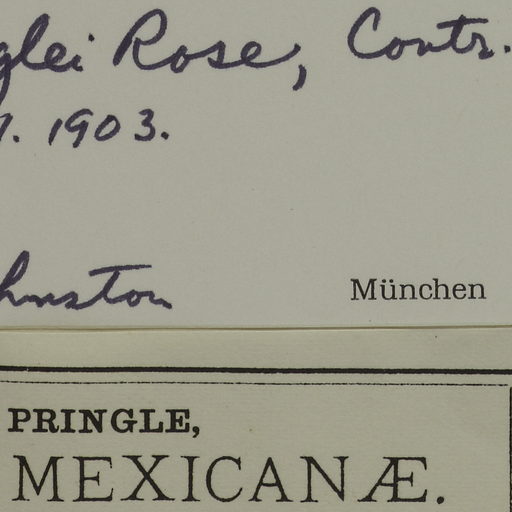 glei Rose, Contr.
1. 1903.
hnston
München
PRINGLE,
MEXICANÆ.